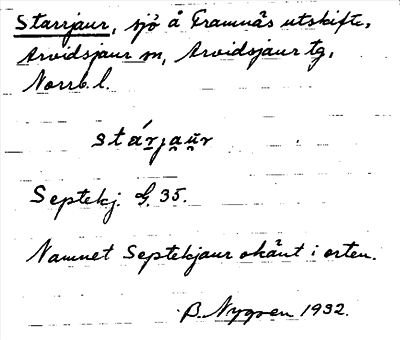 Starrjaur, sjö å Framnäs utskifte,
Arvidsjaur sn, Arvidsjaur tg,
Norrb. l.
stárjau̯r
Septekj. G. 35.
Namnet Septekjaur okänt i orten.
B. Nygren 1932.